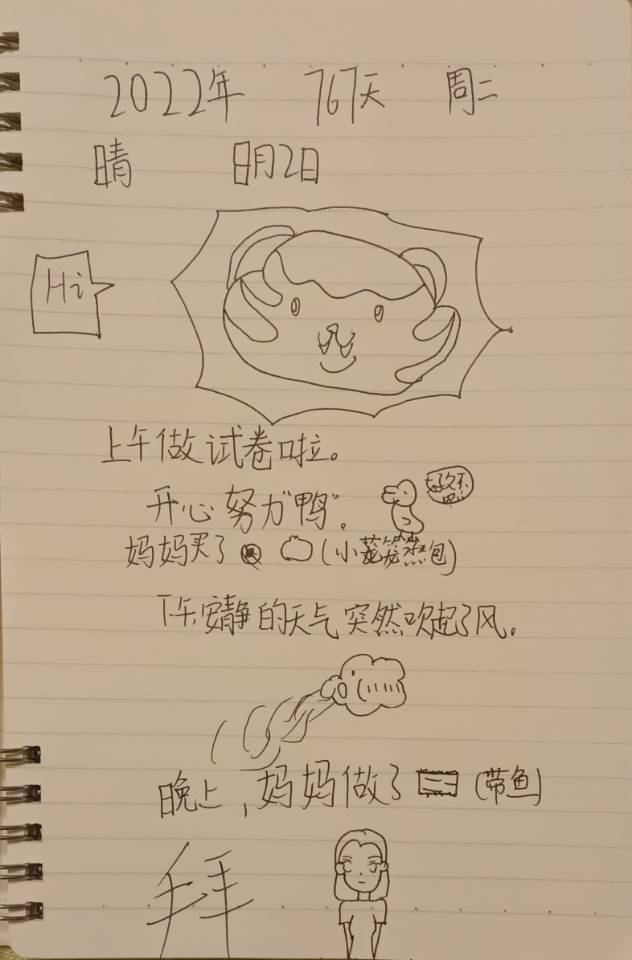 2022年 767天 周二
晴 8月2日
Hi
上午做试卷啦。
开心努力“鸭”。
好久不
妈妈买了 (小笼笼蒸包)
下午安静的天气突然吹起了风。
晚上,妈妈做了 (带鱼)
拜